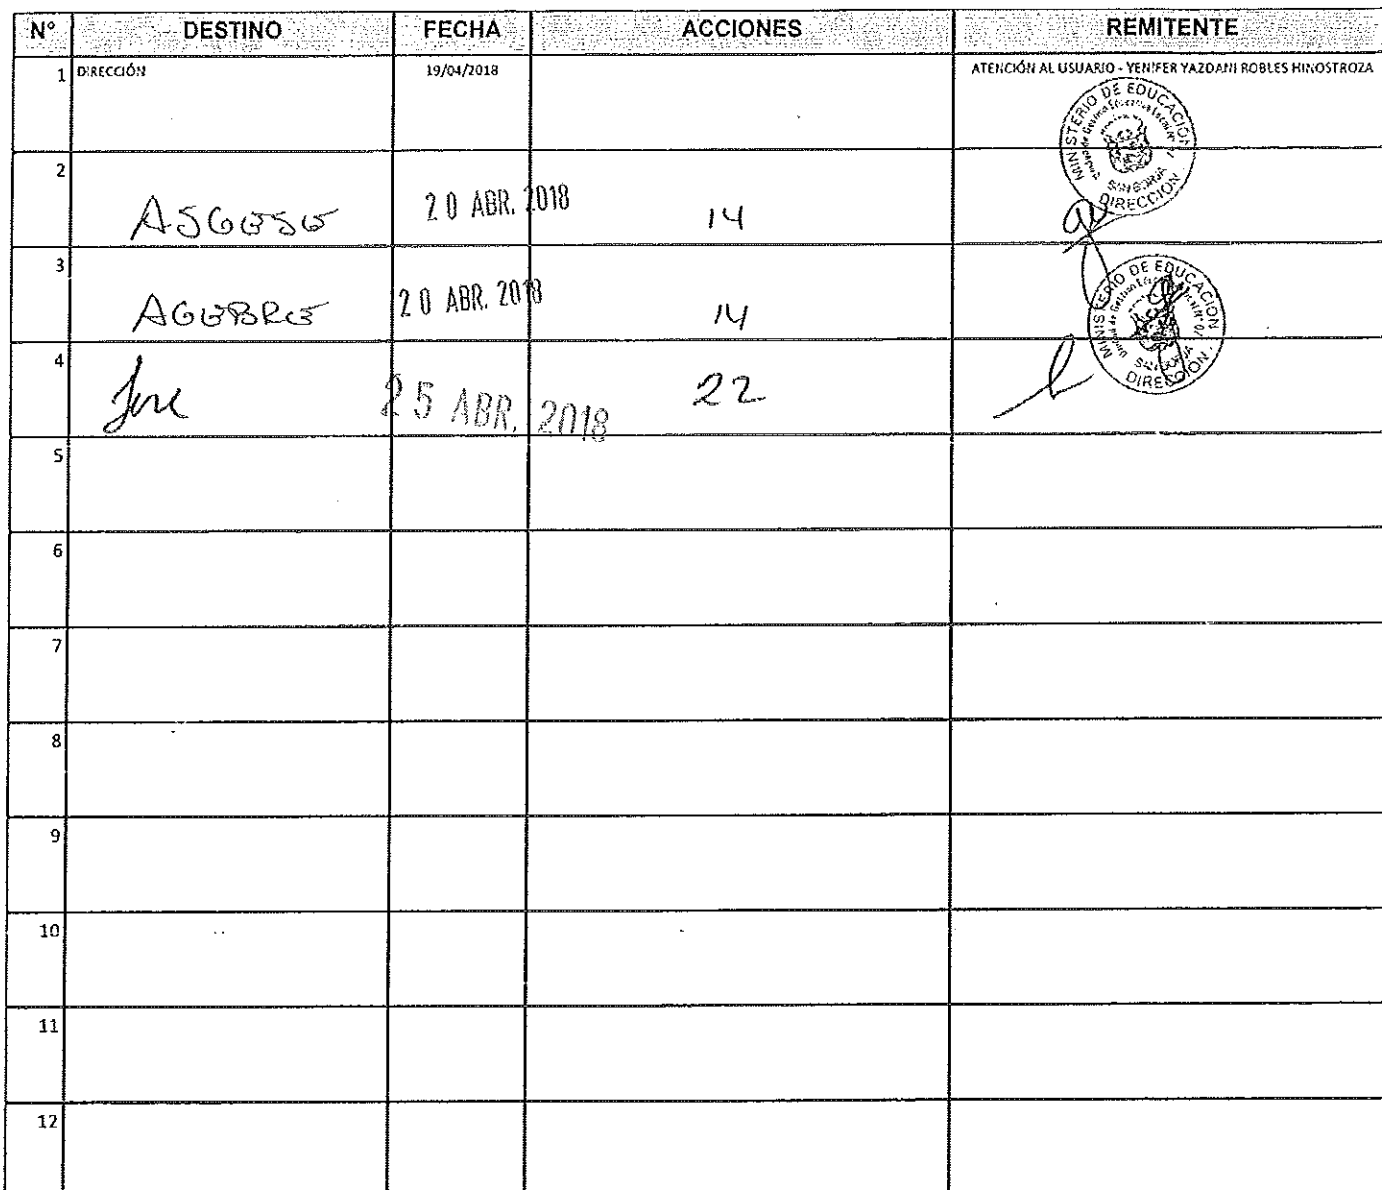 N° DESTINO FECHA ACCIONES REMITENTE
1 DIRECCIÓN 19/04/2018 ATENCIÓN AL USUARIO - YENIFER YAZDANI ROBLES HINOSTROZA
MINISTERIO DE EDUCACIÓN
SAN BORJA
DIRECCIÓN
2 ASGESE 20 ABR. 2018 14
3 AGEBRE 20 ABR. 2018 14
MINISTERIO DE EDUCACIÓN
SAN BORJA
DIRECCIÓN
4 José 25 ABR. 2018 22
5
6
7
8
9
10
11
12